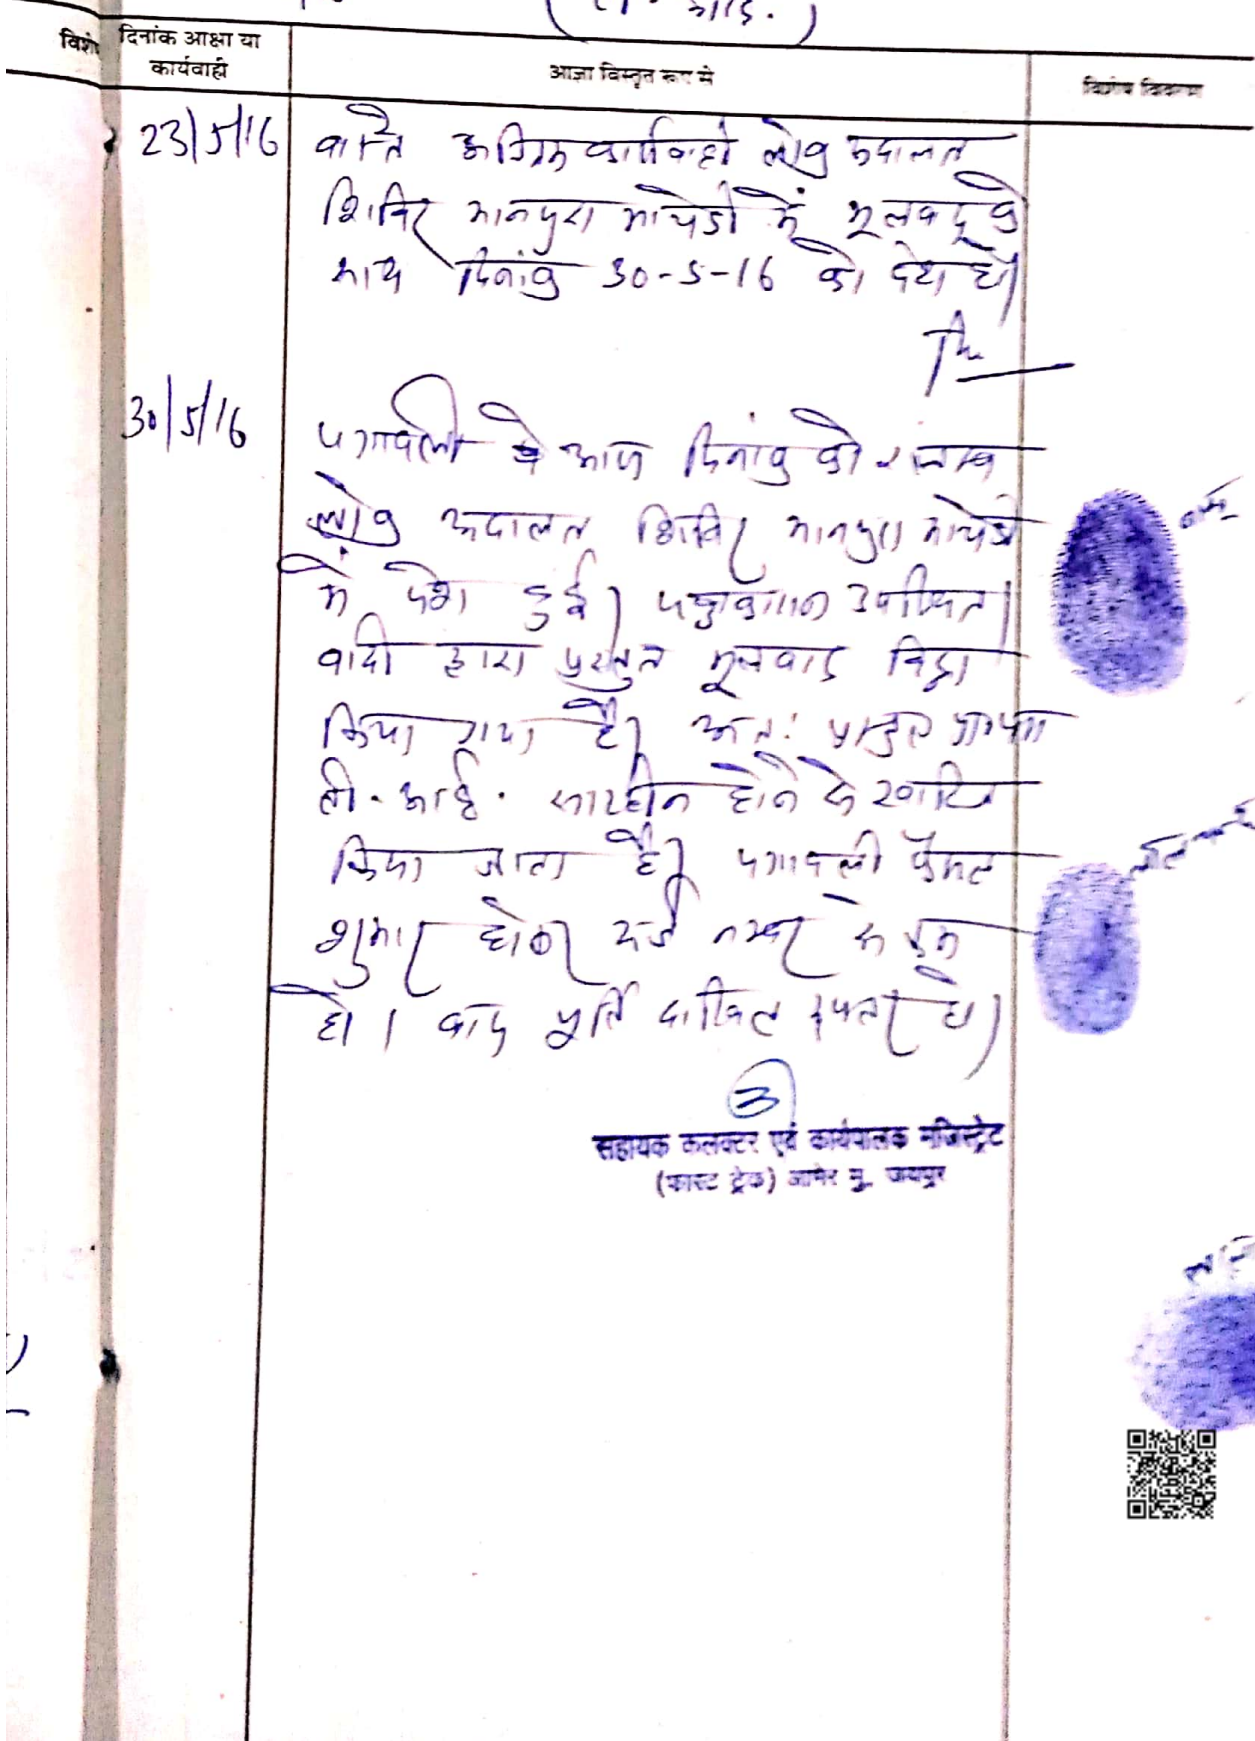 ( टी. आई. )
विशे
दिनांक आज्ञा या
कार्यवाही
आज्ञा विस्तृत रूप से
विशेष विवरण
23/5/16 वास्ते अग्रिम कार्यवाही लोक अदालत
शिविर मानपुरा माचेडी में मूलवाद के
साथ दिनांक 30-5-16 को पेश हो।
30/5/16
पत्रावली आज दिनांक को
लोक अदालत शिविर मानपुरा माचेडी
में पेश हुई। पक्षकारान उपस्थित।
वादी द्वारा प्रस्तुत मूलवाद विड्रा
किया गया है। अतः प्रस्तुत प्रा०पत्र
टी. आई. सारहीन होने से खारिज
किया जाता है। पत्रावली फैसल
शुमार होकर दर्ज नम्बर से कम
हो। बाद पूर्ति दाखिल दफ्तर हो।
सहायक कलक्टर एवं कार्यपालक मजिस्ट्रेट
(फास्ट ट्रेक) आमेर मु. जयपुर